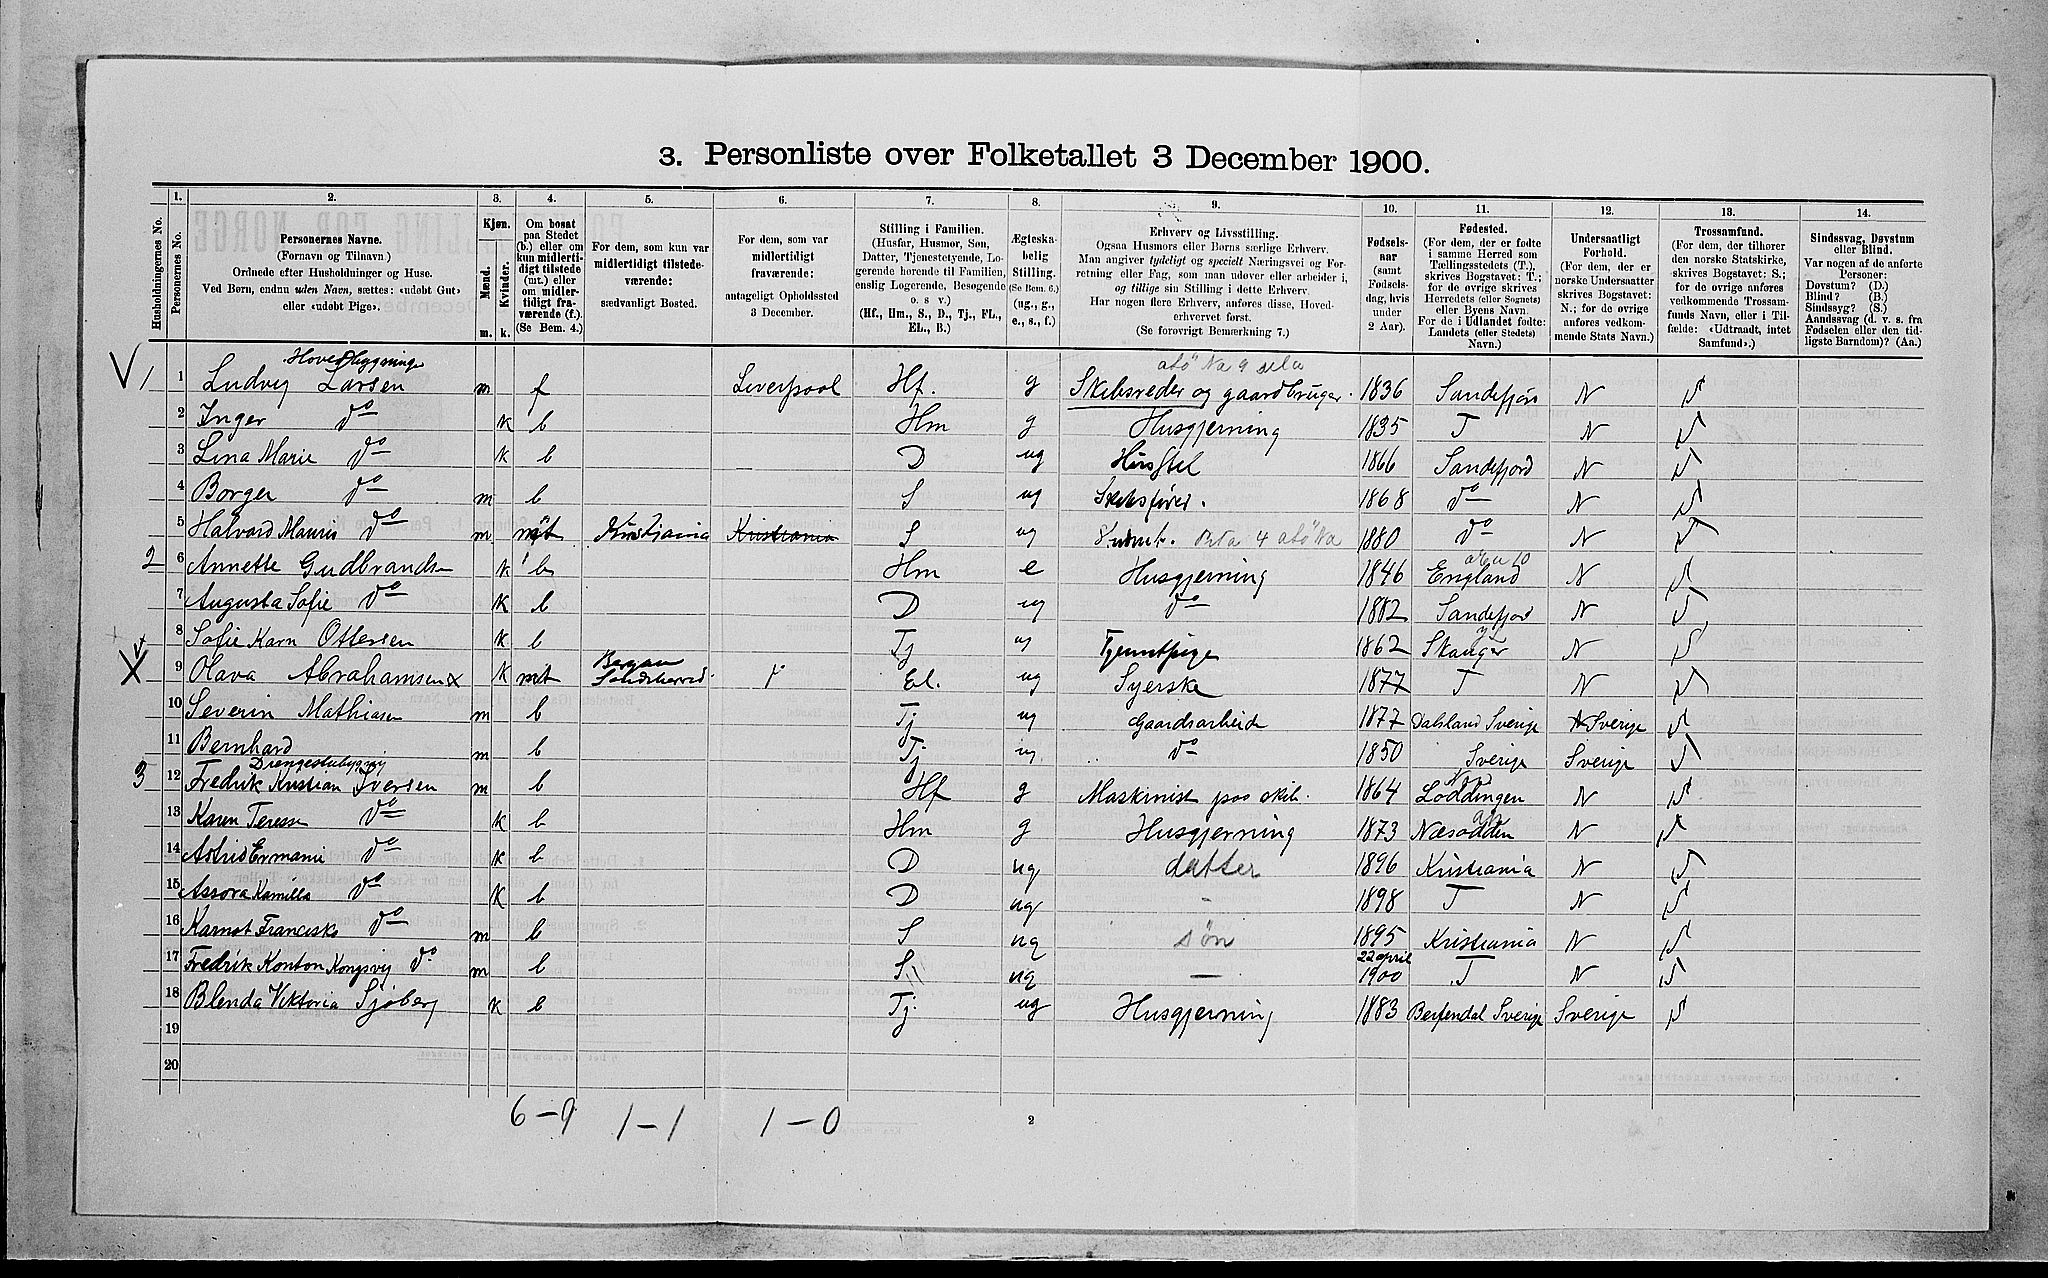 3. Personliste over Folketallet 3 December 1900.
Husholdningernes No.
1. Personernes No.
2. Personernes Navne. (Fornavn og Tilnavn.) Ordnede efter Husholdninger og Huse. Ved Børn, endnu uden Navn, sættes: «udøbt Gut» eller «udøbt Pige».
3. Kjøn. Mænd. m. Kvinder. k.
4. Om bosat paa Stedet (b.) eller om kun midlertidigt tilstede (mt.) eller om midlertidigt fraværende (f.). (Se Bem. 4.)
5. For dem, som kun var midlertidigt tilstedeværende: sædvanligt Bosted.
6. For dem, som var midlertidigt fraværende: antageligt Opholdssted 3 December.
7. Stilling i Familien. (Husfar, Husmor, Søn, Datter, Tjenestetyende, Logerende hørende til Familien, enslig Logerende, Besøgende o. s v.) (Hf., Hm., S., D., Tj., FL., EL., B.)
8. Ægteskabelig Stilling. (Se Bem. 6.) (ug., g., e., s., f.)
9. Erhverv og Livsstilling. Ogsaa Husmors eller Børns særlige Erhverv. Man angiver tydeligt og specielt Næringsvei og Forretning eller Fag, som man udøver eller arbeider i, og tillige sin Stilling i dette Erhverv. Har nogen flere Erhverv, anføres disse, Hovederhvervet først. (Se forøvrigt Bemerkning 7.)
10. Fødselsaar (samt Fødselsdag, hvis under 2 Aar).
11. Fødested. (For dem, der er fødte i samme Herred som Tællingsstedets (T.), skrives Bogstavet: T.; for de øvrige skrives Herredets (eller Sognets) eller Byens Navn. For de i Udlandet fødte: Landets (eller Stedets) Navn.)
12. Undersaatligt Forhold. (For dem, der er norske Undersaatter skrives Bogstavet: N.; for de øvrige anføres vedkommende Stats Navn.)
13. Trossamfund. (For dem, der tilhører den norske Statskirke, skrives Bogstavet: S.; for de øvrige anføres vedkommende Trossamfunds Navn, eller i Tilfælde: «Udtraadt, intet Samfund».)
14. Sindssvag, Døvstum eller Blind. Var nogen af de anførte Personer: Døvstum? (D.) Blind? (B.) Sindssyg? (S.) Aandssvag (d. v. s. fra Fødselen eller den tidligste Barndom)? (Aa.)
Hovedbygning
1 1 Ludvig Larsen m f Liverpool Hf. g Skibsreder og gaardbruger. 1836 Sandefjord N S
2 Inger do k b Hm g Husgjerning 1835 T N S
3 Lina Marie do k b D ug Husstel 1866 Sandefjord N S
4 Borger do m b S ug Skibsfører. 1868 do N S
5 Halvard Mauris do m mt Kristiania Kristiania S ug Student. 1880 do N S
2 6 Annette Gudbrandsen k b Hm e Husgjerning 1846 England N S
7 Augusta Sofie do k b D ug do 1882 Sandefjord N S
8 Sofie Karn Ottersen k b Tj ug Tjenestpige 1862 Skauger N S
9 Olava Abrahamsen k mt Bergan Sandeherred El. ug Syerske 1877 T N S
10 Severin Mathiasen m b Tj ug Gaardsarbeide 1877 Dalsland Sverige Sverige S
11 Bernhard m b Tj. ug do 1850 Sverige Sverige S
Drengestubygning
3 12 Fredrik Kristian Iversen m b Hf g Maskinist paa skib. 1864 Loddingen N S
13 Karen Terese do k b Hm g Husgjerning 1873 Næsodden N S
14 Astrid Ermanie do k b D ug datter 1896 Kristiania N S
15 Assora Kamilla do k b D ug - 1898 T N S
16 Karnot Francisko do m b S ug søn 1895 Kristiania N S
17 Fredrik Konton Kongsvig do m b S ug — 22 april 1900 T N S
18 Blenda Viktoria Sjöberg k b Tj. ug Husgjerning 1883 Berfendal Sverige Sverige S
19
20
6-9 1-1 1-0
2